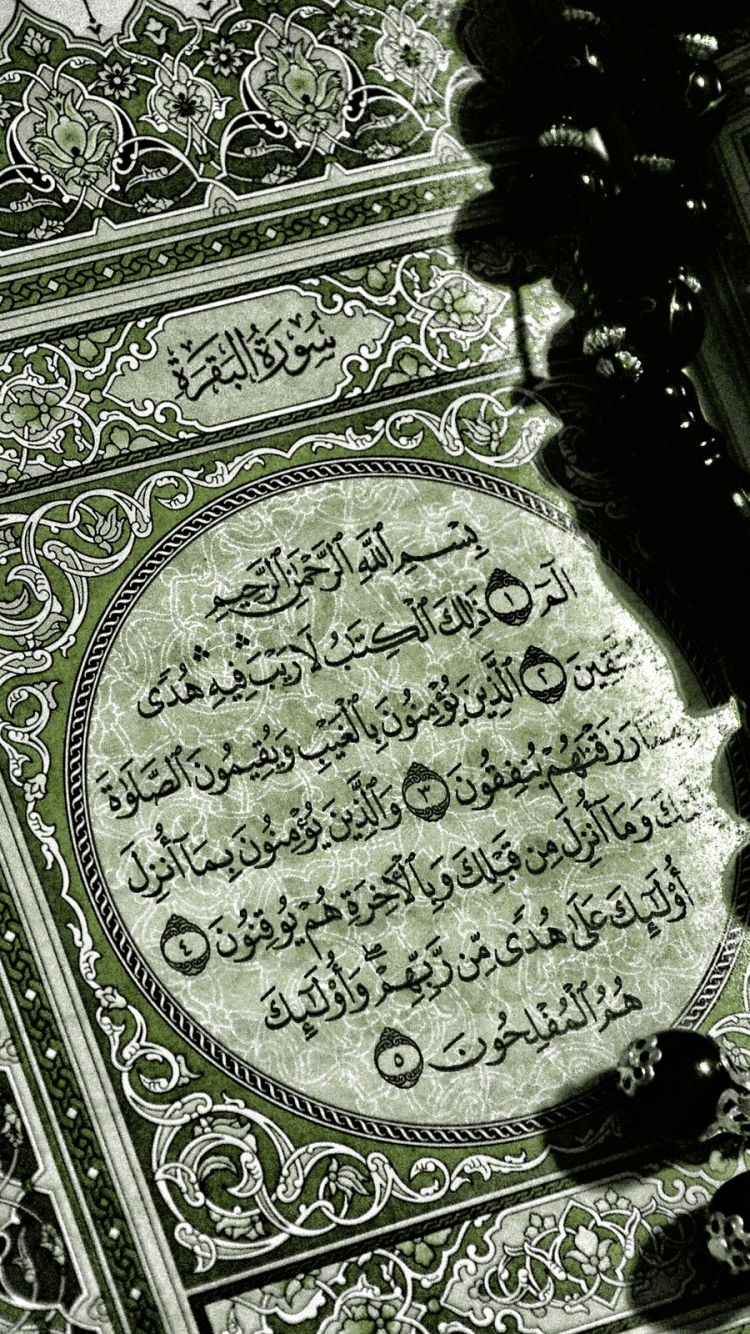 سُورَةُ الْبَقَرَةِ
بِسْمِ ٱللَّهِ ٱلرَّحْمَٰنِ ٱلرَّحِيمِ
الٓمٓ ١ ذَٰلِكَ ٱلْكِتَٰبُ لَا رَيْبَ ۛ فِيهِ ۛ هُدًى
ٱلَّذِينَ يُؤْمِنُونَ بِٱلْغَيْبِ وَيُقِيمُونَ ٱلصَّلَوٰةَ ٢
رَزَقْنَٰهُمْ يُنفِقُونَ ٣ وَٱلَّذِينَ يُؤْمِنُونَ بِمَآ أُنزِلَ
وَمَآ أُنزِلَ مِن قَبْلِكَ وَبِٱلْءَاخِرَةِ هُمْ يُوقِنُونَ ٤
أُو۟لَٰٓئِكَ عَلَىٰ هُدًى مِّن رَّبِّهِمْ ۖ وَأُو۟لَٰٓئِكَ
هُمُ ٱلْمُفْلِحُونَ ٥